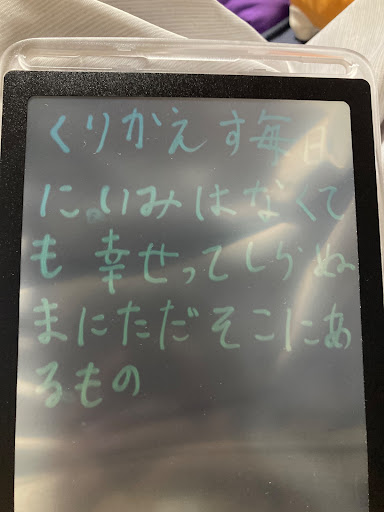 くりかえす毎日
にいみはなくて
も 幸せってしらぬ
まにただそこにあ
るもの